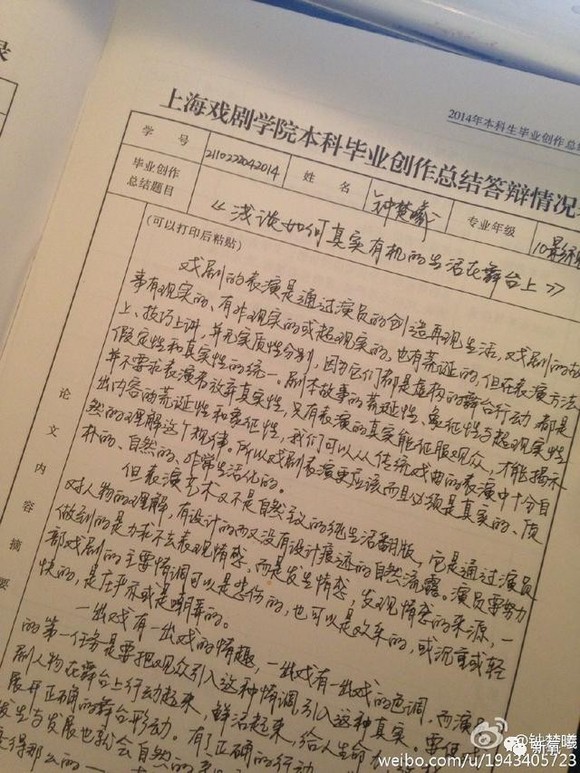 2014年本科生毕业创作总结
上海戏剧学院本科毕业创作总结答辩情况
学 号
2110222042014
姓 名
钟楚曦
专业年级
10
毕业创作
总结题目
《浅谈如何真实有机的生活在舞台上》
(可以打印后粘贴)
论文内容摘要
戏剧的表演是通过演员的创造再现生活,戏剧的故
事有现实的、有非现实的或超现实的,也有荒诞的,但在表演方法
上、技巧上讲,并无实质性分别,因为它们都是虚构的舞台行动都是
假定性和真实性的统一。剧本故事的荒诞性、象征性与超现实性
并不要求表演者放弃真实性,只有表演的真实能征服观众,才能揭示
出内容的荒诞性和象征性,我们可以从传统戏曲的表演中十分自
然的理解这个规律。所以戏剧表演更应该而且必须是真实的、质
朴的、自然的、非常生活化的。
但表演艺术又不是自然主义的纯生活翻版,它是通过演员
对人物的理解,有设计的而又没有设计痕迹的自然流露。演员要努力
做到的是力求不去表现情感,而是发生情感,发现情感的来源,一
部戏剧的主要情调可以是悲伤的,也可以是欢乐的,或沉重或轻
快的,是庄严亦或是嘲弄的。
一出戏有一出戏的情趣,一出戏有一出戏的色调,而演员
的第一任务是要把观众引入这种情调,引入这种真实。要使
剧人物在舞台上行动起来,鲜活起来,给人生命力
展开正确的舞台行动。有了正确的行动
发生与发展也就会自然的
得那么的一
@钟楚曦
新氧
weibo.com/u/1943405723